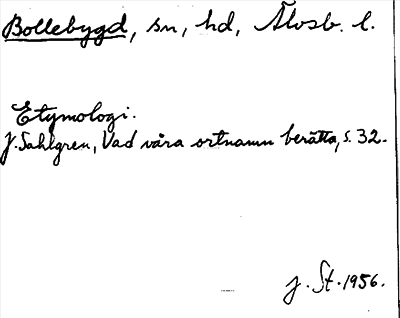 Bollebygd, sn, hd, Älvsb. l.
Etymologi.
J. Sahlgren, Vad våra ortnamn berätta, s. 32.
J. St. 1956.